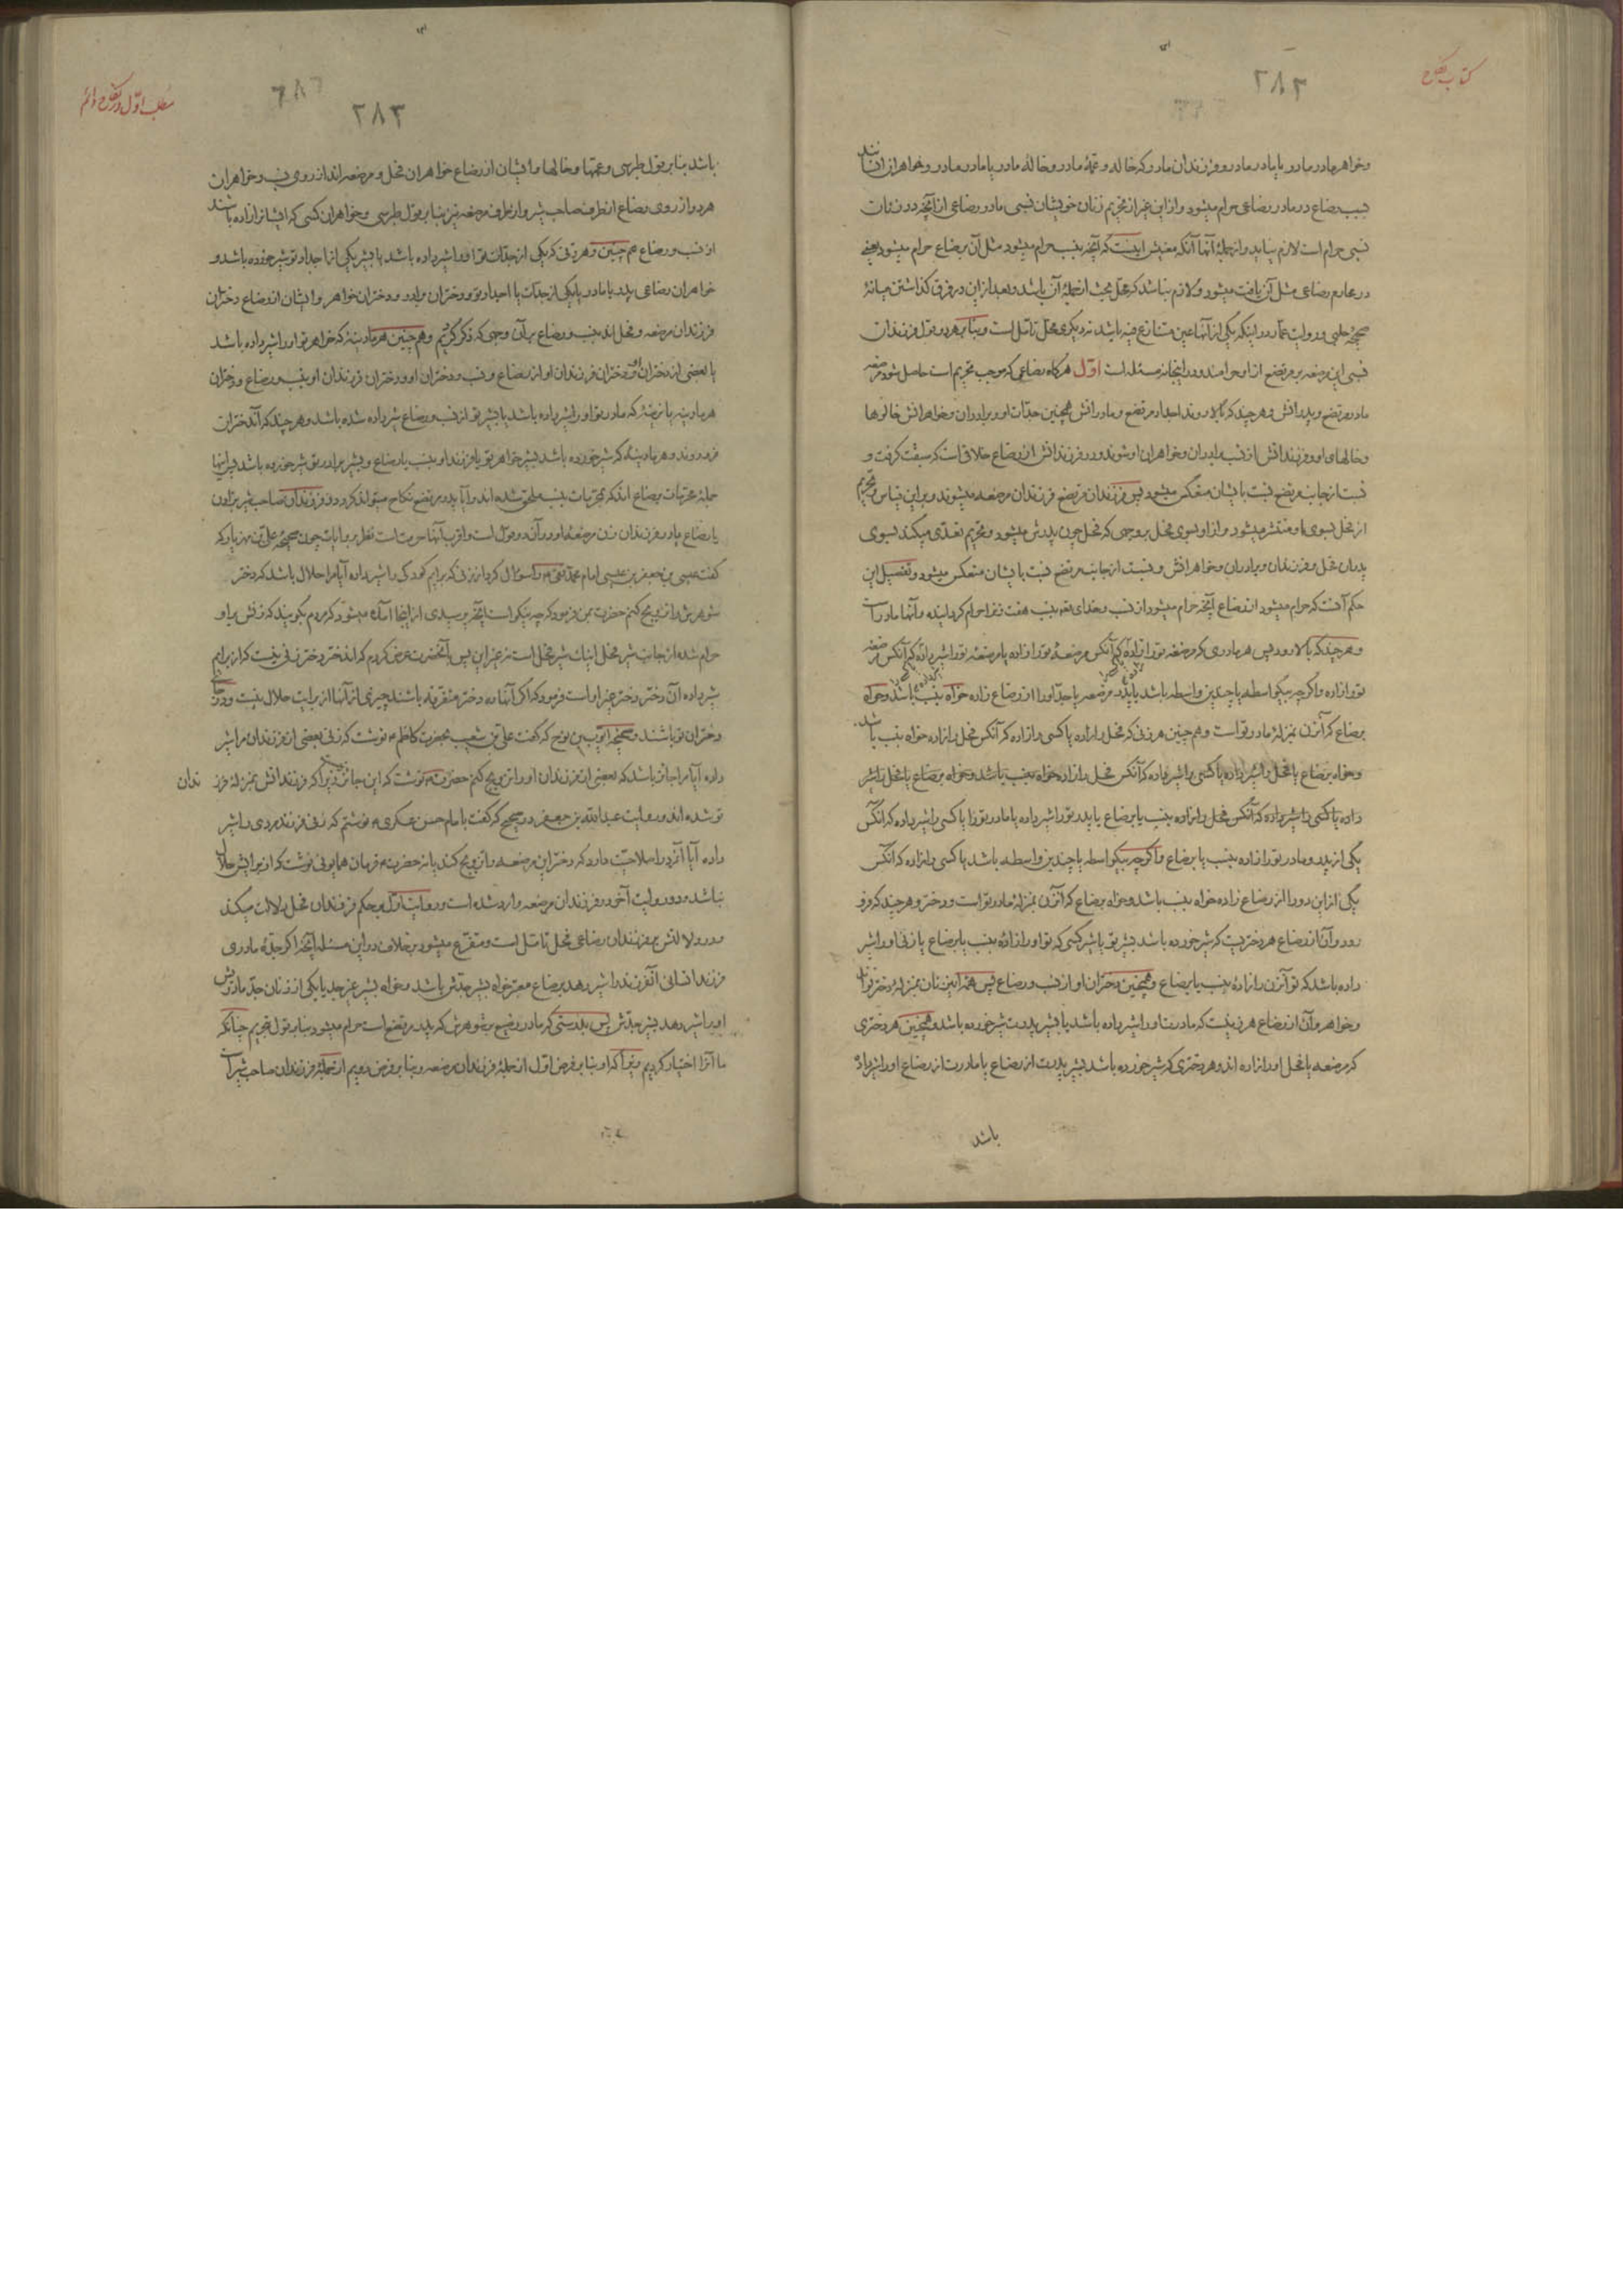 کتاب نکاح
۲۸۲
و خواهر مادر مادر یا مادر مادر و فرزندان مادر که خاله و عمهٔ مادر و خالهٔ مادر یا مادر مادر و خواهر
بسبب رضاع در مادر رضاعی حرام میشود و از این غیر از تحریم زنان خویشان نسبی مادر رضاعی از آنچه در
نسبی حرام است لازم نیاید و از جملهٔ آنها آنکه معنیش اینست که آنچه بنسب حرام میشود مثل آن برضاع حرام میشود یعنی
در محارم رضاعی مثل آن یافت میشود و لازم نباشد که محل بحث از جملهٔ آن باشد و بعد از این در فرق گذاشتن میانهٔ
صحیحهٔ حلبی و روایت عمار در اینکه یکی از آنها عین متنازع فیه باشد نه دیگری محل تأمل است و بنابر هر دو قول فرزندان
نسبی این مرضعه بر مرتضع از او حرامند و در اینجا نه مسئله است اول هرگاه رضاعی که موجب تحریم است حاصل شود مرضعه
مادر مرتضع و پدرانش و هر چند که بالا روند اجداد مرتضع و مادرانش همچنین جدات او و برادران و خواهرانش خالوها
و خالهای او و فرزندانش از نسب برادران و خواهران او شوند و در فرزندانش از رضاع خلافی است که سبقت گرفت و
نسبت از جانب مرتضع نسبت بایشان منعکس میشود پس فرزندان مرتضع فرزندان مرضعه میشوند و بر این قیاس و تحریم
از فحل بسوی او منتشر میشود و از او بسوی فحل بر وجهی که فحل چون پدرش میشود و تحریم تعدی میکند بسوی
پدران فحل و فرزندان و برادران و خواهرانش و نسبت از جانب مرتضع نسبت بایشان منعکس میشود و تفصیل این
حکم آنست که حرام میشود از رضاع آنچه حرام میشود از نسب و خدای تعه بنسب هفت زنرا حرام گردانیده و آنها مادر است
و هر چند که بالا رود پس هر مادری که مرضعه تو را زاده یا آنکس مرضعهٔ تو را زاده یا مرضعه تو را شیر داده یا آنکس مرضعه
تو را زاده و اگر چه بیکواسطه یا چندین واسطه باشد یا پدر مرضعه یا جد او را از رضاع زاده خواه بنسب باشد و خواه
برضاع که آنزن بمنزلهٔ مادر تو است و هم چنین هر زنی که فحل را زاده یا کسی را زاده که آنکس فحل را زاده خواه بنسب باشد
و خواه برضاع یا فحل را شیر داده یا کسی را شیر داده که آنکس فحل را زاده خواه بنسب باشد و خواه برضاع یا فحل را شیر
داده یا کسی را شیر داده که آنکس فحل را زاده بنسب یا برضاع یا پدر تو را شیر داده یا مادر تو را یا کسی را شیر داده که آنکس
یکی از پدر و مادر تو را زاده بنسب یا برضاع و اگر چه بیکواسطه یا چندین واسطه باشد یا کسی را زاده که آنکس
یکی از این دو را از رضاع زاده خواه بنسب باشد و خواه برضاع که آنزن بمنزلهٔ مادر تو است و دختر و هر چند که فرو
رود و آن از رضاع هر دختریست که شیر خورده باشد بشیر تو یا شیر کسی که تو او را زادهٔ بنسب یا برضاع یا زنی او را شیر
داده باشد که تو آنزن را زادهٔ بنسب یا برضاع و همچنین دختران او از نسب و رضاع پس همه اینزنان بمنزلهٔ دختر تواند
و خواهر و آن از رضاع هر زنیست که مادرت او را شیر داده باشد یا بشیر پدرت شیر خورده باشد و همچنین هر دختری
که مرضعه یا فحل او را زاده اند و هر دختری که شیر خورده باشد بشیر پدرت از رضاع یا مادرت از رضاع او را شیر داده
باشد
مطلب اول در نکاح دائم
۲۸۳
باشد بنابر قول طبرسی و عمتها و خالها و ایشان از رضاع خواهران فحل و مرضعه اند از روی نسب و خواهران
هر دو از روی رضاع از طرف صاحب شیر و از طرف مرضعه نیز بنابر قول طبرسی و خواهران کسی که ایشانرا زاده باشند
از نسب و رضاع هم چنین و هر زنی که یکی از جدات تو او را شیر داده باشد یا بشیر یکی از اجداد تو شیر خورده باشد و
خواهران رضاعی پدر یا مادر یا یکی از جدات یا اجداد تو و دختران برادر و دختران خواهر و ایشان از رضاع دختران
فرزندان مرضعه و فحل اند بنسب و رضاع بر آن وجهی که ذکر کردیم و هم چنین هر مادینهٔ که خواهر تو او را شیر داده باشد
یا بعضی از دختران او و دختران فرزندان او از رضاع و نسب و دختران او و دختران فرزندان او بنسب و رضاع و دختران
هر مادینه یا نرینهٔ که مادر تو او را شیر داده باشد یا بشیر تو از نسب و رضاع شیر داده شده باشد و هر چند که آندختران
فرو روند و هر مادینهٔ که شیر خورده باشد بشیر خواهر تو یا فرزند او بنسب یا رضاع و بشیر برادر تو شیر خورده باشد پس اینها
جملهٔ محرمات رضاع اند که بمحرمات بنسب ملحق شده اند و آیا پدر مرتضع نکاح میتواند کرد در فرزندان صاحب شیر بزادن
یا رضاع یا در فرزندان زن مرضعهٔ او در آن دو قول است و اقرب آنها حرمت است نظر بروایات چون صحیحه علی بن مهزیار که
گفت عیسی بن جعفر بن عیسی امام محمد تقی ع را سؤال کرد از زنی که برایم کودکی را شیر داده آیا مرا حلال باشد که دختر
شوهرش را تزویج کنم حضرت بمن فرمود که چه نیکو است آنچه پرسیدی از اینجا آمده میشود که مردم بگویند که زنش بر او
حرام شده از جانب شیر فحل اینست شیر فحل است نه غیر این پس بآنحضرت عرض کردم که اندختر دختر زنی نیست که از برایم
شیر داده آن دختر دختر غیر او است فرمود که اگر آنها ده دختر متفرقه باشند چیزی از آنها از برایت حلال نیست و در جای
دختران تو باشند و صحیحه ایوب بن نوح که گفت علی بن شعیب بحضرت کاظم ع نوشت که زنی بعضی از فرزندان مرا شیر
داده آیا مرا جائز باشد که بعضی از فرزندان او را تزویج کنم حضرت ع نوشت که این جائز نیست زیرا که فرزندانش بمنزلهٔ فرزندان
تو شده اند و روایت عبدالله بن جعفر در صحیح که گفت بامام حسن عسکری ع نوشتم که زنی فرزند مردی را شیر
داده آیا آنمرد را صلاحیت دارد که دختر این مرضعه را تزویج کند یا نه حضرت ع فرمان همایونی نوشت که از برایش حلال
نباشد و دو روایت آخر در فرزندان مرضعه وارد شده است و روایت اول بر حکم فرزندان فحل دلالت میکند
و در دلالتش بفرزندان رضاعی فحل تأمل است و متفرع میشود بر خلاف در این مسئله آنچه اگر جدهٔ مادری
فرزند انسانی آنفرزند را شیر دهد برضاع معتبر خواه بشیر جدش باشد و خواه بشیر غیر جد یا یکی از زنان جد مادریش
او را شیر دهد بشیر جدش پس بدرستی که مادر رضیع بر شوهرش که پدر مرتضع است حرام میشود بنابر قول تحریم چنانکه
ما آنرا اختیار کردیم زیرا که او بنابر فرض اول از جملهٔ فرزندان مرضعه و بنابر فرض دویم از جملهٔ فرزندان صاحب شیر است